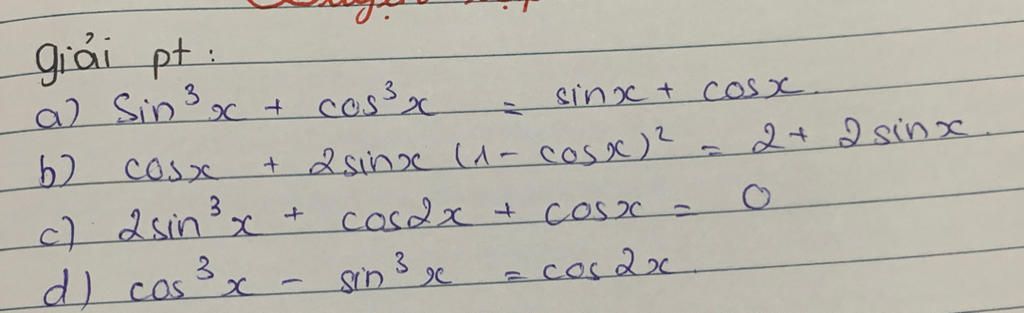 giải pt :
a) Sin³x + cos³x = sinx + cosx.
b) cosx + 2sinx (1 - cosx)² = 2 + 2sinx.
c) 2sin³x + cos2x + cosx = 0
d) cos³x - sin³x = cos2x.